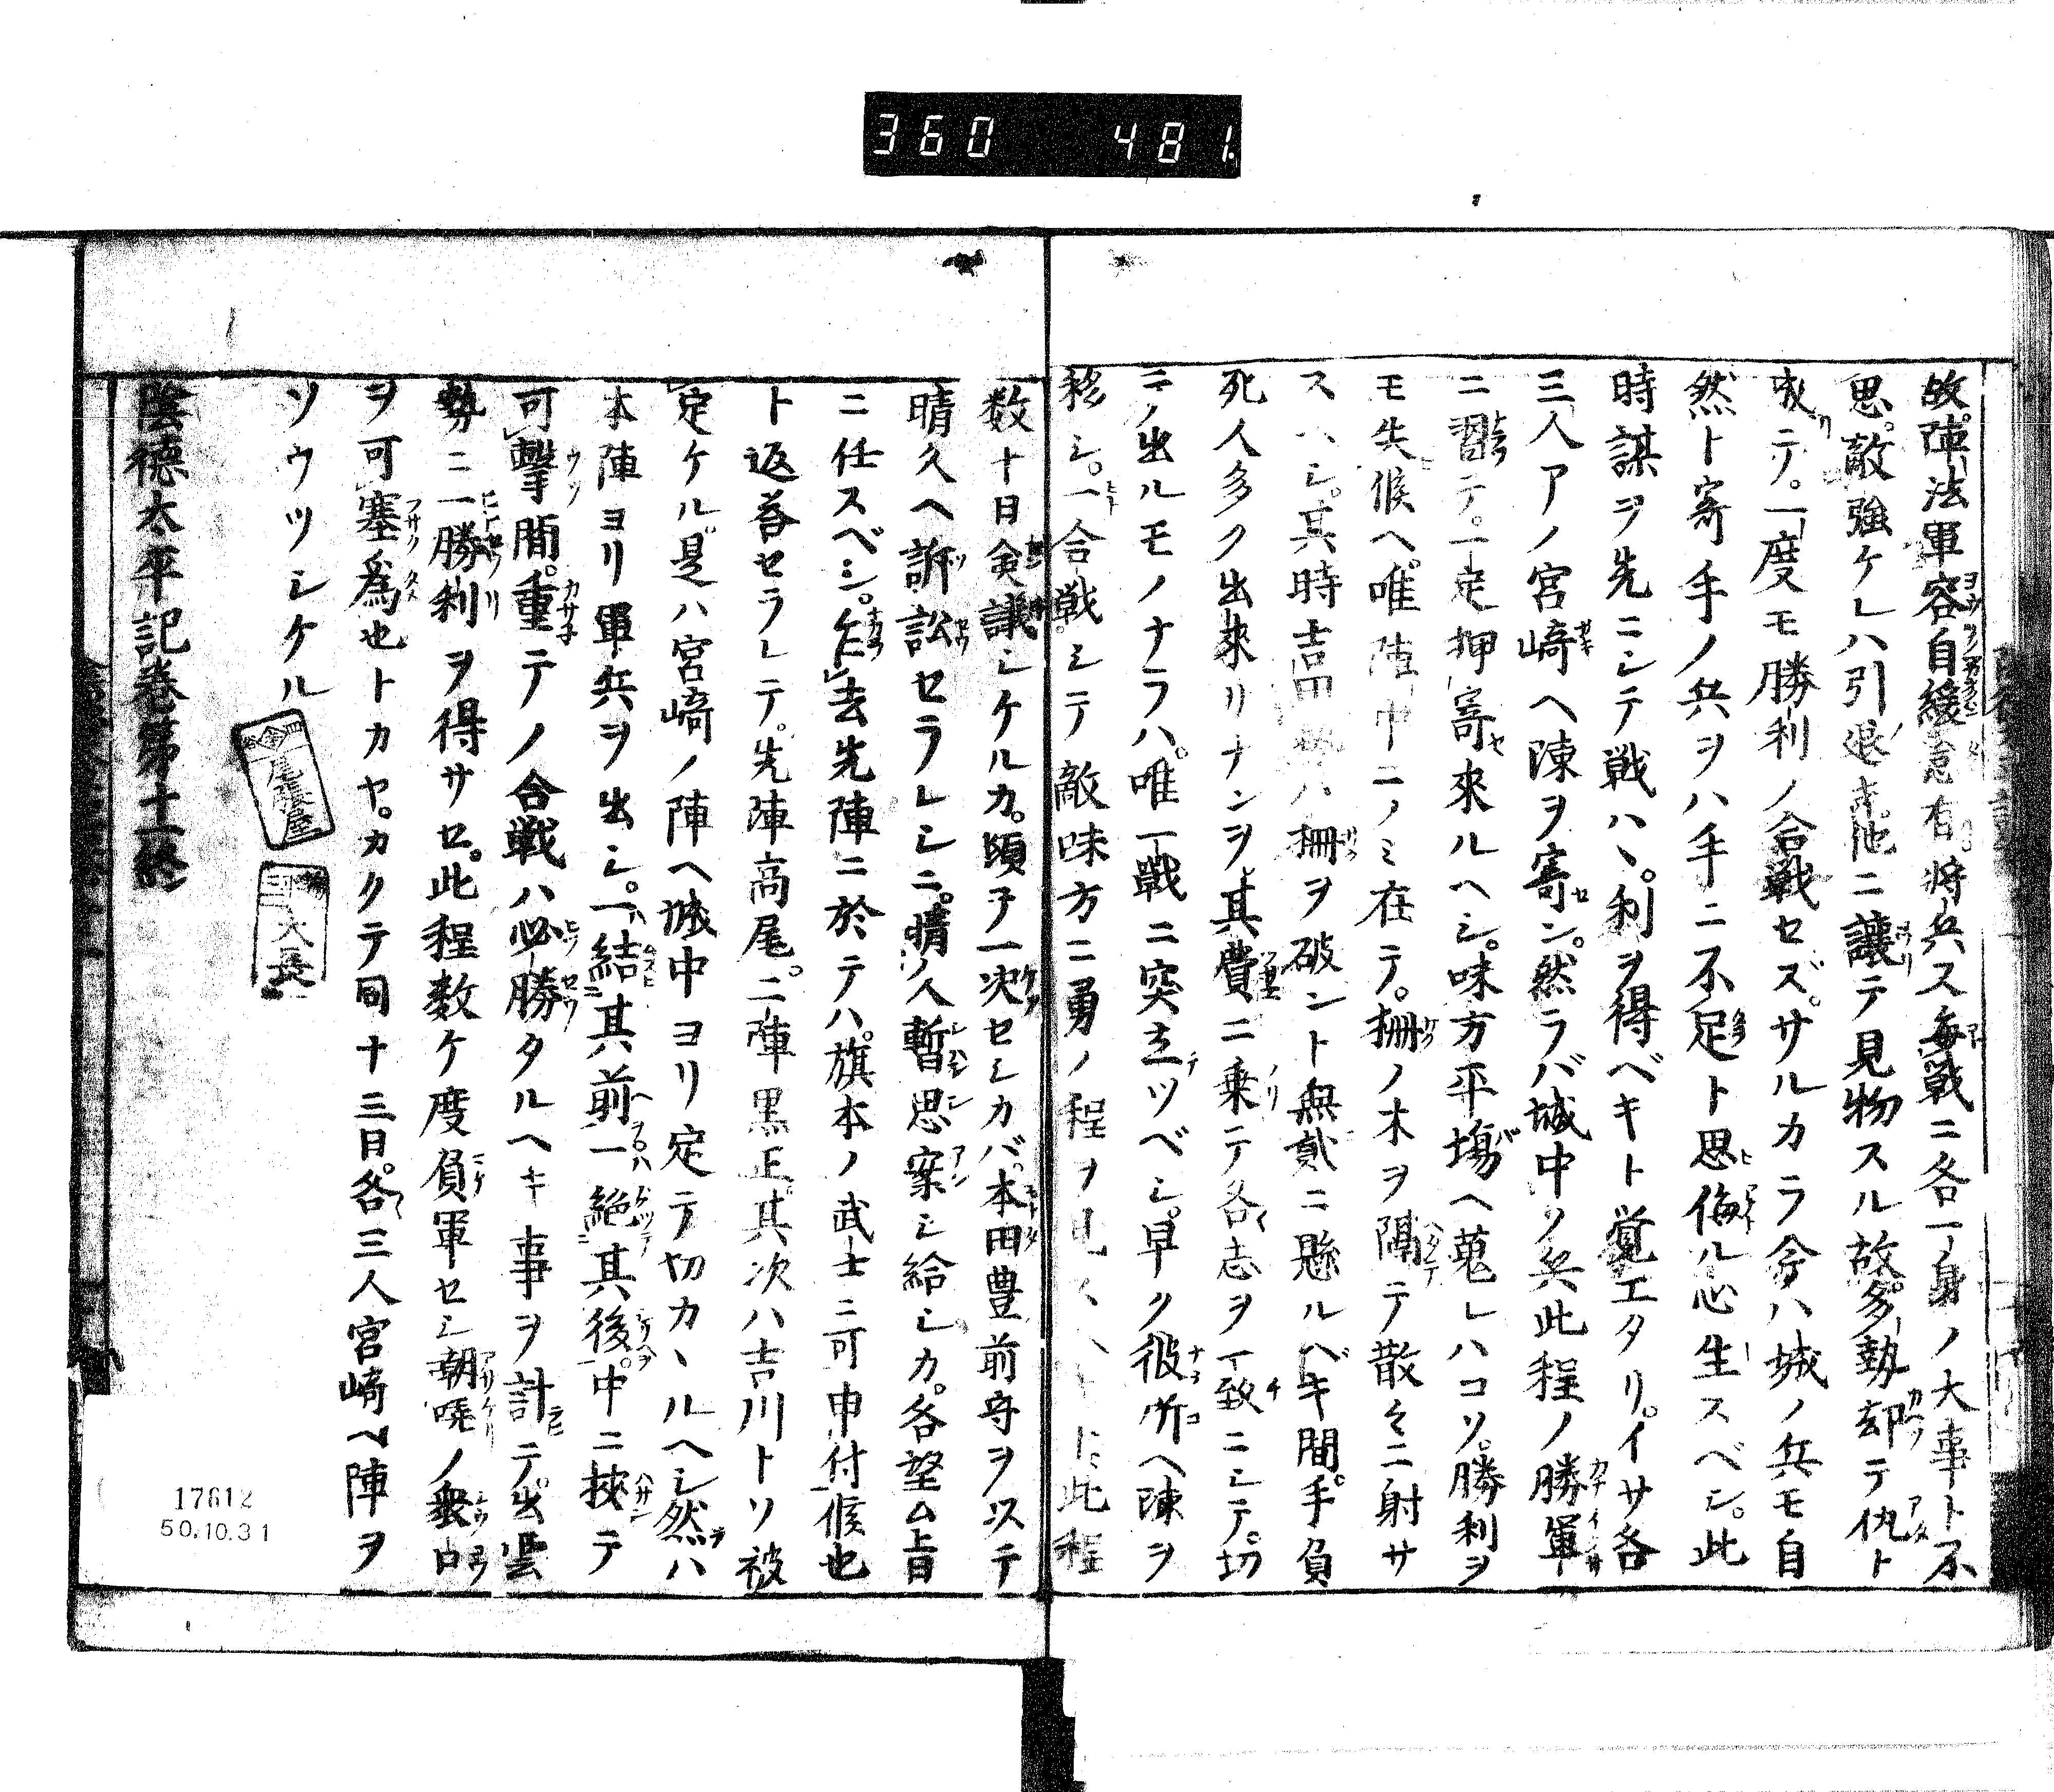 360 481
故。陣法軍容自緩怠有将兵ス毎戦ニ各一身ノ大事ト不
思。敵強ケレハ引退キ。他ニ讓テ見物スル故。多勢却テ仇ト
成テ。一度モ勝利ノ合戦セズ。サルカラ令ハ城ノ兵モ自
然ト寄手ノ兵ヲハ手ニ不足ト思侮ル心生スベシ。此
時謀ヲ先ニシテ戦ハヽ。利ヲ得ベキト覚エタリ。イサ各
三人アノ宮﨑ヘ陳ヲ寄ン。然ラバ城中ノ兵此程ノ勝軍
ニ習テ。一定押寄來ルヘシ。味方平塲ヘ蒐レハコソ。勝利ヲ
モ失候ヘ。唯陣中ニノミ在テ。柵ノ木ヲ隔テ散々ニ射サ
スヘシ。其時吉田勢ハ柵ヲ破ント無貳ニ懸ルベキ間。手負
死人多ク出來リナンヲ。其費ニ乗テ各志ヲ一致ニシテ。切
テノ出ルモノナラハ。唯一戰ニ突立ツベシ。早ク彼所ヘ陳ヲ
移シ。一合戰シテ敵味方ニ勇ノ程ヲ見スヘト此程
数十日僉議シケルカ。頃子一決セシカバ。本田豊前守ヲ以テ
晴久ヘ訴訟セラレシニ。晴久暫思案シ給シカ。各望ム旨
ニ任スベシ。乍去先陣ニ於テハ。旗本ノ武士ニ可申付候也
ト返荅セラレテ。先陣高尾。二陣黒正。其次ハ吉川トソ被
定ケル。是ハ宮﨑ノ陣ヘ城中ヨリ定テ切カヽルヘシ然ハ
本陣ヨリ軍兵ヲ出シ。一結其前一絶其後。中ニ挾テ
可擊間。重テノ合戦ハ必勝タルヘキ事ヲ計テ。出雲
勢ニ一勝利ヲ得サセ。此程数ケ度負軍セシ嘲哢ノ衆口
ヲ可塞爲也トカヤ。カクテ同十三日。各三人宮﨑ヘ陣ヲ
ソウツシケル
尾張屋
大長
陰徳太平記巻第十一終
17612
50.10.31